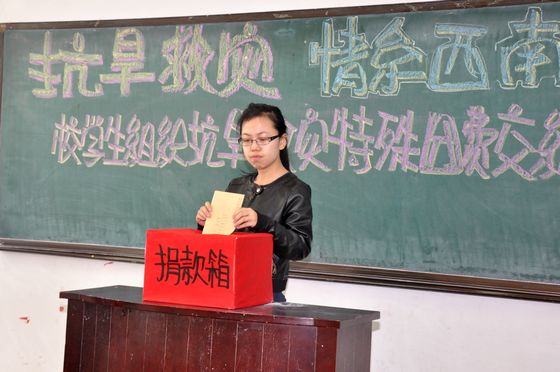 抗旱救灾 情系西南
校学生组织抗旱 灾特殊团费交
捐款箱